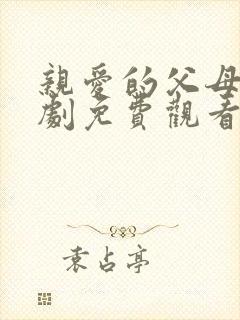 親愛的父母
劇免費觀看
袁占亭